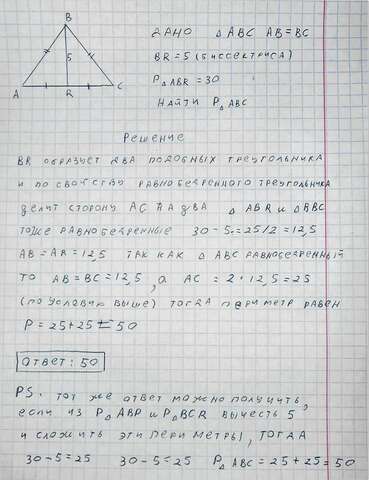 B
5
A R C
ДАНО △ABC AB=BC
BR=5 (биссектриса)
P△ABR=30
Найти P△ABC
Решение
BR образует два подобных треугольника
и по свойству равнобедренного треугольника
делит сторону AC на два △ ABR и △RBC
тоже равнобедренные 30-5=25/2=12,5
AB=AR=12,5 так как △ ABC равнобедренный
то AB=BC=12,5, а AC = 2·12,5=25
(по условию выше) тогда периметр равен
P=25+25=50
Ответ: 50
PS. тот же ответ можно получить,
если из P△ABR и P△BCR вычесть 5
и сложить эти периметры, тогда
30-5=25 30-5=25 P△ABC=25+25=50